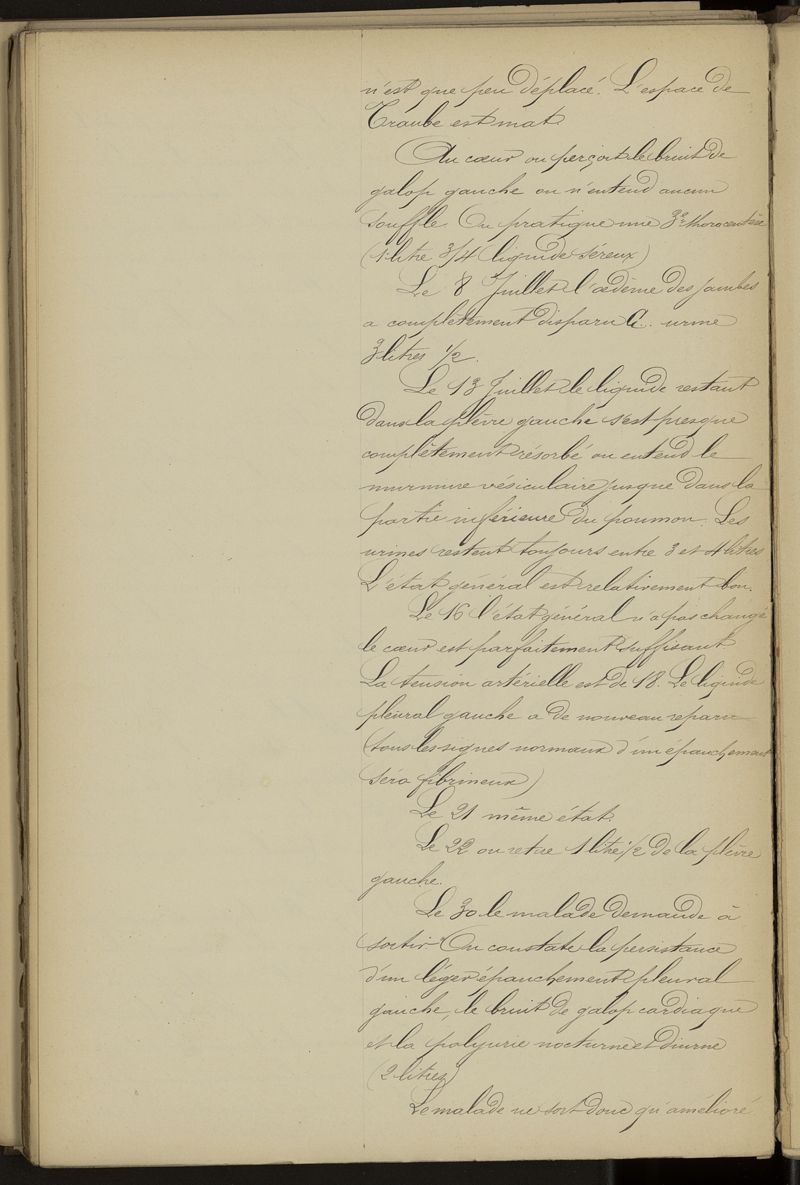 n'est que peu déplacé. L'espace de
Traube est mat
Au cœur on perçoit le bruit de
galop gauche on n'entend aucun
souffle. On pratique une 3e thoracentèse
(1 litre 3/4 liquide séreux)
Le 8 Juillet l'œdème des jambes
a complètement disparu urine
3 litres 1/2.
Le 13 Juillet le liquide restant
dans la plèvre gauche s'est presque
complètement résorbé on entend le
murmure vésiculaire jusque dans la
partie inférieure du poumon. Les
urines restent toujours entre 3 et 4 litres
L'état général est relativement bon.
Le 16 l'état général n'a pas changé
le cœur est parfaitement suffisant
La tension artérielle est de 18. Le liquide
pleural gauche a de nouveau reparu
(tous les signes normaux d'un épanchement
séro fibrineux)
Le 21 même état.
Le 22 on retire 1 litre 1/2 de la plèvre
gauche.
Le 30 le malade demande à
sortir On constate la persistance
d'un léger épanchement pleural
gauche, le bruit de galop cardiaque
et la polyurie nocturne et diurne
(2 litres)
Le malade ne sort donc qu'amélioré